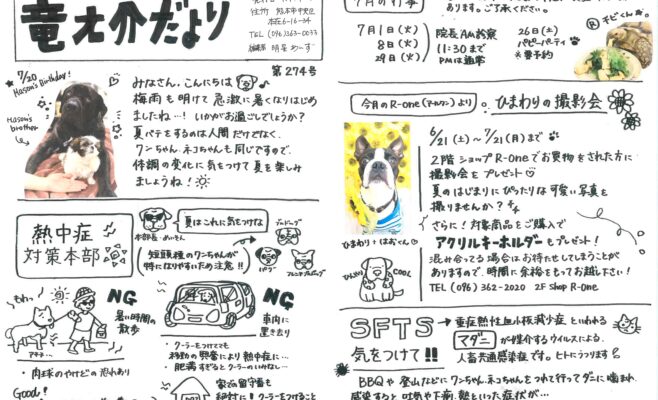 竜之介だより
住所 熊本市中央区
本荘6-16-34
TEL (096)363-0033
第274号
7/20
Mason's Birthday!
Mason's brother
みなさん、こんにちは
梅雨も明けて急激に暑くなりはじめ
ましたね…! いかがお過ごしでしょうか?
夏バテをするのは人間だけでなく、
ワンちゃん、ネコちゃんも同じですので、
体調の変化に気をつけて夏を楽しみ
ましょうね!
熱中症
対策本部
夏はこれに気をつけな
本部長・めいそん
(短頭種のワンちゃんが
特になりやすいため注意!!)
ブルドッグ
パグ
フレンチブルドッグ
NG
暑い時間の
散歩
アチチ…
・肉球のやけどの恐れあり
NG
車内に
置き去り
・クーラーをつけてても
・肥満すぎるとクーラーのいみなし…
Good!
家でお留守番も
絶対に!クーラーをつけること
7月の行事
ます。ご了承ください。
7月1日(火)
8日(火)
29日(火)
院長AM診察
11:30まで
PMは通常
26日(土)
パピーパーティ
※要予約
チビくん
今月のR-one(アールワン)より
ひまわりの撮影会
6/21(土)～7/21(月)まで
2階ショップR-Oneでお買物をされた方に
撮影会をプレゼント♡
夏のはじまりにぴったりな可愛い写真を
撮りませんか?
さらに!対象商品をご購入で
アクリルキーホルダーもプレゼント!
混み合ってる場合はお待たせしてしまうことが
ありますので、時間に余裕をもってお越し下さい!
TEL (096) 362-2020 2F Shop R-One
ひまわり + はおくん♡
COOL
SFTS
気をつけて!!
→重症熱性血小板減少症といわれる
マダニが媒介するウイルスによる、
人畜共通感染症です。ヒトにうつります
BBQや登山などにワンちゃん、ネコちゃんをつれて行ってダニに噛まれ、
感染すると吐気や下痢、熱といった症状が…